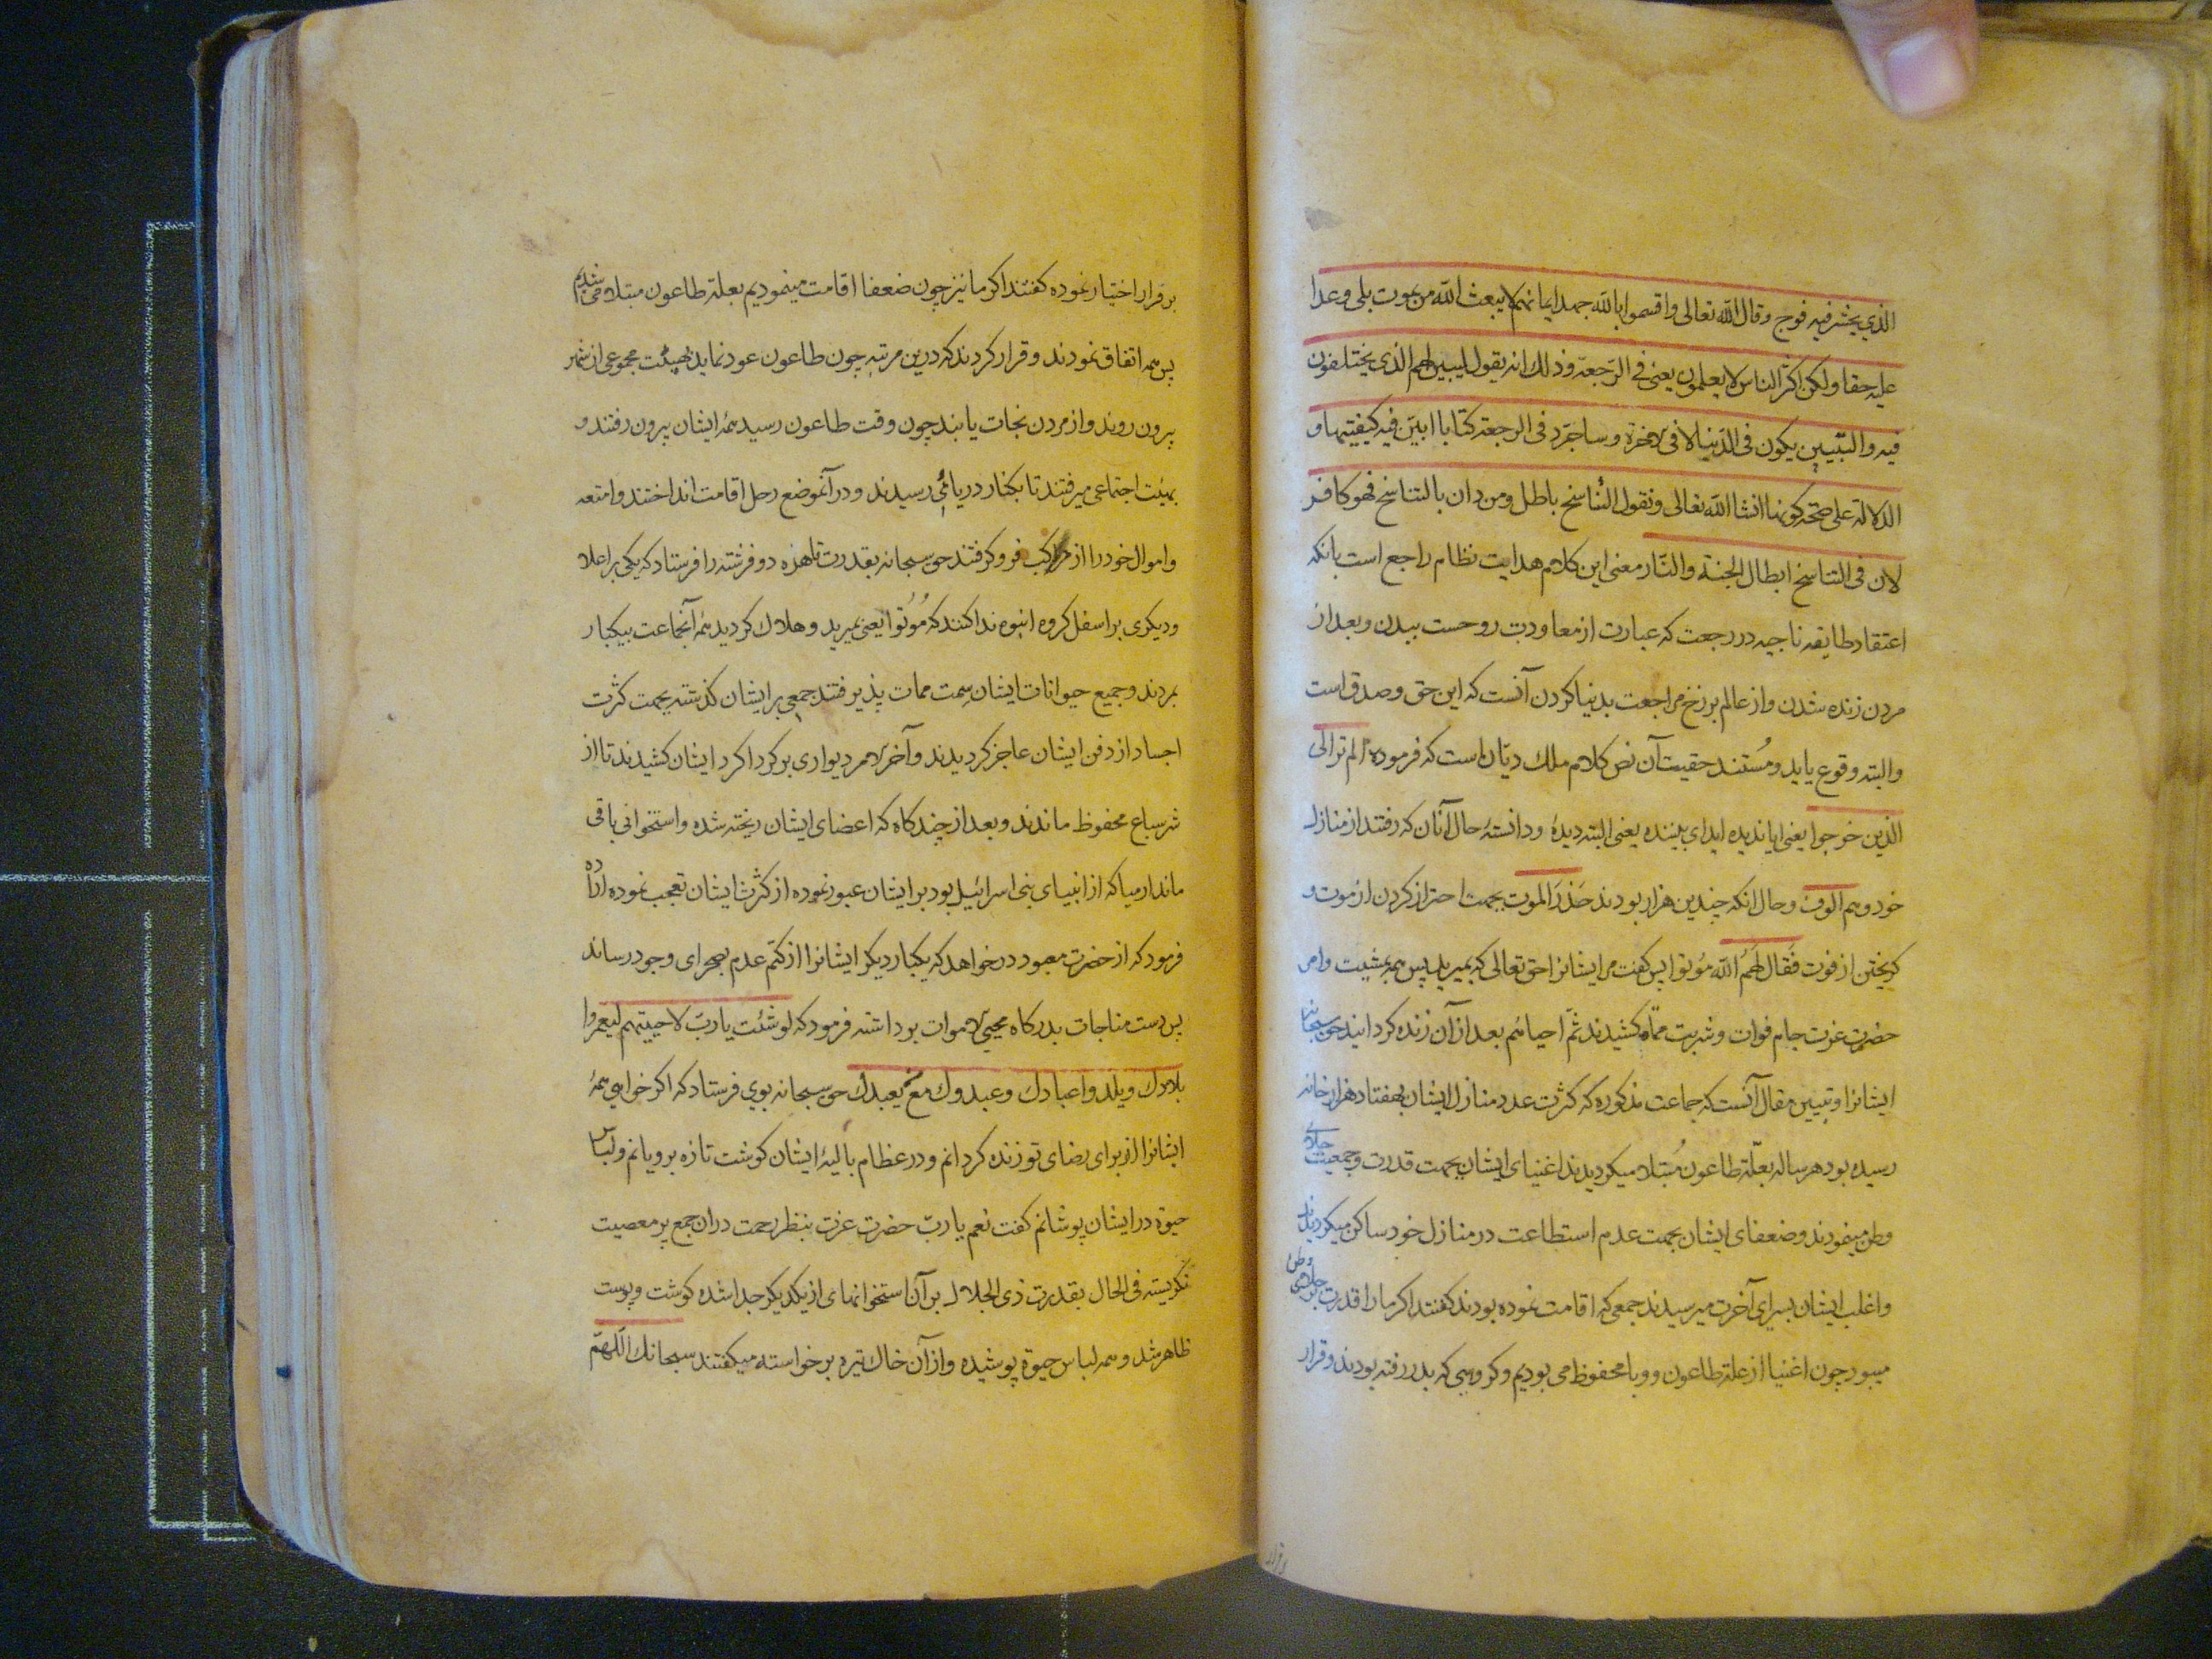 الذي يحشر فيه فوج وقال الله تعالى واقسموا بالله جهد ايمانهم لا يبعث الله من يموت بلى وعدا
عليه حقا ولكن اكثر الناس لا يعلمون يعني في الرجعة وذلك انه يقول ليبين لهم الذي يختلفون
فيه والتبيين يكون في الدنيا لا في الاخرة وساجرّد في الرجعة كتابا ابيّن فيه كيفيتها و
الدلالة على صحّة كونها انشا الله تعالى ونقول التناسخ باطل ومن دان بالتناسخ فهو كافر
لان في التناسخ ابطال الجنة والنّار معنى اين كلام هدايت نظام راجع است بانكه
اعتقاد طايفه ناجيه در رجعت كه عبارت از معاودت روحست ببدن و بعد از
مردن زنده شدن واز عالم برزخ مراجعت بدنيا كردن آنست كه اين حق و صدق است
والبته وقوع يابد ومُستند حقيت آن نص كلام ملك ديّان است كه فرموده الم تر الى
الذين خرجوا يعني ايا نديده ايد اى بيننده يعنى البته ديدهٔ ودانستهٔ حال آنان كه رفتند از منازل
خود وهم الوف وحال انكه چندين هزار بودند حَذَرَ الموت بجهت احتراز كردن از موت و
كريختن از فوت فَقَال لَهُمُ الله مُوتوا پس كفت مر ايشانرا حق تعالى كه بميريد پس همه بمشيت وامر
حضرت عزت جام فوات وشربت ممات كشيدند ثمّ احياهُم بعد از آن زنده كردانيد حق سبحانه
ايشانرا وتبيين مقال آنست كه جماعت مذكوره كه كثرت عدد منازل ايشان بهفتاد هزار خانه
رسيده بود هر ساله بعلّة طاعون مُبتلا ميكرديدند اغنياى ايشان بجهت قدرت وجمعيت جلاى
وطن مينمودند وضعفاى ايشان بجهت عدم استطاعت در منازل خود ساكن ميكرديدند
واغلب ايشان بسراى آخرت ميرسيدند جمعى كه اقامت نموده بودند كفتند اكر ما را قدرت جلاى وطن
ميبود چون اغنيا از علة طاعون ووبا محفوظ مى بوديم وكروهى كه بدر رفته بودند وقرار
وقرار
بر قرار اختيار نموده كفتند اكر ما نيز چون ضعفا اقامت مينموديم بعلة طاعون مبتلا مى شديم
پس همه اتفاق نمودند وقرار كردند كه درين مرتبه چون طاعون عود نمايد بهيئت مجموعى از شهر
بيرون روند واز مردن نجات يابند چون وقت طاعون رسيد همهٔ ايشان بيرون رفتند و
بهيئت اجتماعى ميرفتند تا بكنار دريائى رسيدند ودر آنموضع رحل اقامت انداختند وامتعه
واموال خود را از مراكب فرو كرفتند حق سبحانه بقدرت قاهره دو فرشته را فرستاد كه يكى بر اعلا
وديكرى بر اسفل كروه انبوه ندا كنند كه مُوتُوا يعنى بميريد وهلاك كرديد همهٔ آنجماعت بيكبار
بمردند وجميع حيوانات ايشان سِمت ممات پذيرفتند جمعى بر ايشان كذشته بجهت كثرت
اجساد از دفن ايشان عاجز كرديدند وآخر الامر ديوارى بر كرداكرد ايشان كشيدند تا از
شر سباع محفوظ ماندند وبعد از چند كاه كه اعضاى ايشان ريخته شده واستخوانى باقى
ماند ارميا كه از انبياى بنى اسرائيل بود بر ايشان عبور نموده از كثرت ايشان تعجب نموده اراده
فرمود كه از حضرت معبود درخواهد كه يكبار ديكر ايشانرا از كتم عدم بصحراى وجود رساند
پس دست مناجات بدركاه محيى الاموات برداشته فرمود كه لو شئت يا ربّ لاحييتهم ليعمروا
بلادك ويلدوا عبادك وعبدوك مع من يعبدك حق سبحانه بوى فرستاد كه اكر خواهى همهٔ
ايشانرا از براى رضاى تو زنده كردانم ودر عظام باليهٔ ايشان كوشت تازه برويانم ولباس
حيوة در ايشان پوشانم كفت نعم يا ربّ حضرت عزت بنظر رحمت در ان جمع پر معصيت
نكريسته فى الحال بقدرت ذى الجلال بر آن استخوانهاى از يكديكر جدا شده كوشت وپوست
ظاهر شد وهمه لباس حيوة پوشيده واز آن خاك تيره برخواسته ميكفتند سبحانك اللّهمّ